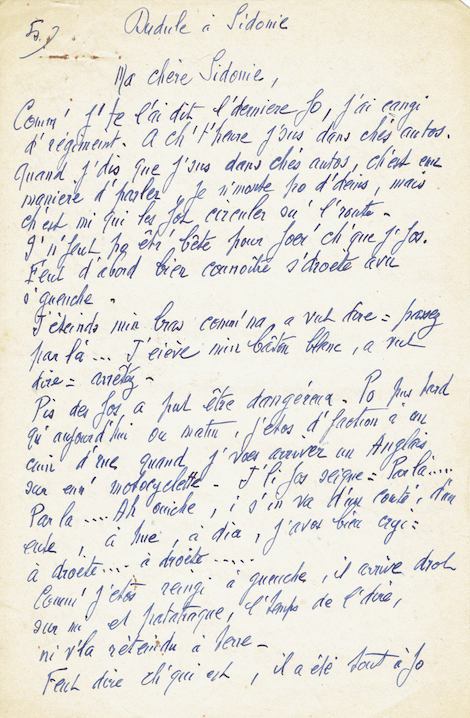 5)
Dudule à Sidonie
Ma chère Sidonie,
Comm' j' te l'ai dit l'dernière fo, j'ai cangi
d'régiment. A ch't'heure j'sus dans chés autos.
Quand j'dis que j'sus dans chés autos, ch'est eun
manière d'parler, je n'monte po d'dins, mais
ch'est mi qui les fot circuler su' l'route-
I' n'feut po êtr' bête pour foer' ch'que j'fos.
Feut d'abord bien connoîtr' s'droète avu
s'gueuche.
J'éteinds min bras comm'na, a vut dire = passez
par là... J'élève min bâton blanc, a vut
dire = arrêtez-
Pis des fos, a put être dangéreux. Po pus tard
qu'aujourd'hui ou matin, j'étos d'faction à un
cuin d'rue quand j'vois arriver un Anglais
sur enn' motocyclette. J'li fos seigne = Par là....
Par là .... Ah ouiche, i s'in va d'un couté, d'un
eute, à hue, à dia, j'avos bieu cryi =
à droète... à droète.....
Comm' j'étos reingi à gueuche, il arrive droèt
sur mi et patatraque, l'temps de l'dire,
mi v'là réteindu à terre-
Feut dire ch'qui est, il a été tout à fo